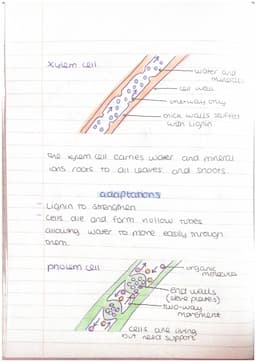 xylem cell
water and
minerals
cell wall
one-way only
thick walls stuffed
with Lignin
the xylem cell carries water and mineral
ions roots to all leaves and shoots.
adaptations
- Lignin to strengthen
- Cells die and form hollow tubes
allowing water to more easily through
them.
phloem cell
organic
molecules
end walls
(sieve plates)
two-way
movement
cells are living
but need support